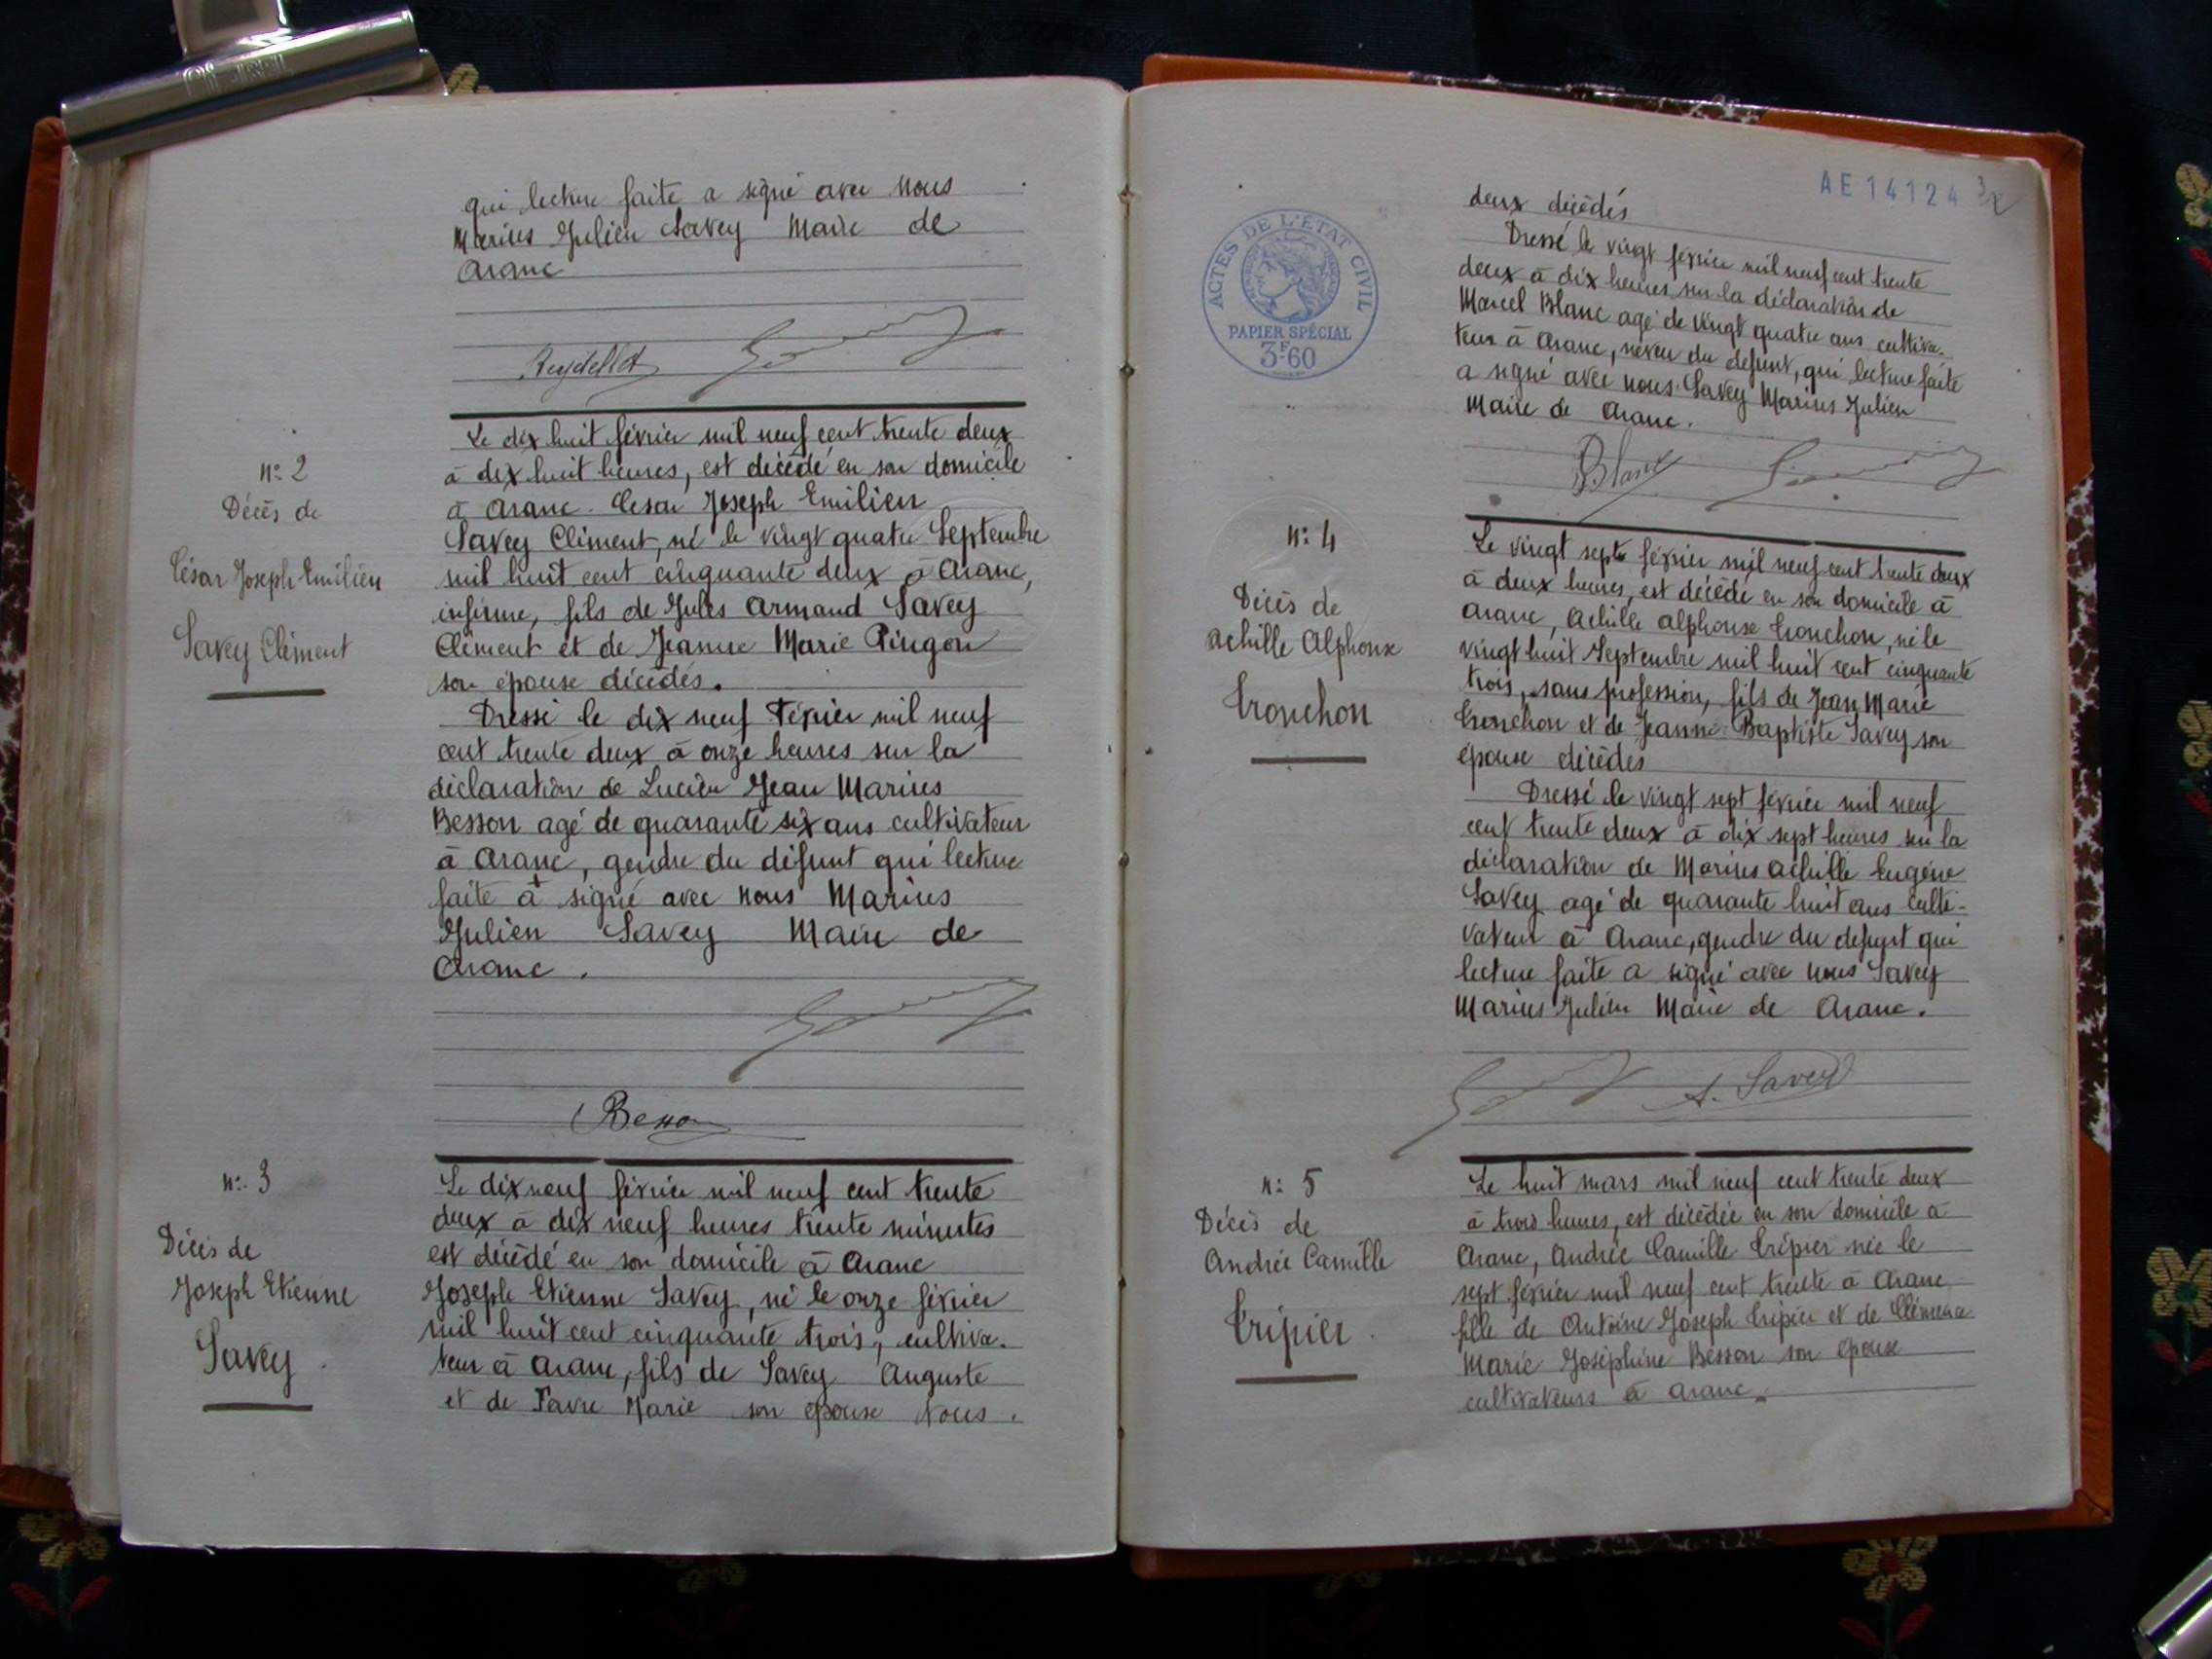 qui lecture faite a signé avec nous
Marius Julien Savey Maire de
Aranc
Reydellet
n: 2
Décès de
César Joseph Emilien
Savey Clément
Le dix huit février mil neuf cent trente deux
à dix huit heures, est décédé en son domicile
à Aranc. César Joseph Emilien
Savey Clément, né le vingt quatre Septembre
mil huit cent cinquante deux à Aranc,
infirme, fils de Jules Armand Savey
Clément et de Jeanne Marie Pingon
son épouse décédés.
Dressé le dix neuf Février mil neuf
cent trente deux à onze heures sur la
déclaration de Lucien Jean Marius
Besson agé de quarante six ans cultivateur
à Aranc, gendre du défunt qui lecture
faite a signé avec nous Marius
Julien Savey Maire de
Aranc.
Besson
n: 3
Décès de
Joseph Etienne
Savey.
Le dix neuf février mil neuf cent trente
deux à dix neuf heures trente minutes
est décédé en son domicile à Aranc
Joseph Etienne Savey, né le onze février
mil huit cent cinquante trois, cultiva-
teur à Aranc, fils de Savey Auguste
et de Favre Marie son épouse tous.
AE 14124
ACTES DE L'ÉTAT CIVIL
PAPIER SPÉCIAL
3F60
deux décédés
Dressé le vingt février mil neuf cent trente
deux à dix heures sur la déclaration de
Marcel Blanc agé de vingt quatre ans cultiva-
teur à Aranc, neveu du défunt, qui lecture faite
a signé avec nous Savey Marius Julien
Maire de Aranc.
Blanc
n: 4
Décès de
Achille Alphonse
Tronchon
Le vingt sept février mil neuf cent trente deux
à deux heures, est décédé en son domicile à
Aranc, Achille Alphonse Tronchon, né le
vingt huit Septembre mil huit cent cinquante
trois, sans profession, fils de Jean Marie
Tronchon et de Jeanne Baptiste Savey son
épouse décédés
Dressé le vingt sept février mil neuf
cent trente deux à dix sept heures sur la
déclaration de Marius Achille Eugène
Savey agé de quarante huit ans culti-
vateur à Aranc, gendre du défunt qui
lecture faite a signé avec nous Savey
Marius Julien Maire de Aranc.
A. Savey
n: 5
Décès de
Andrée Camille
Tripier.
Le huit mars mil neuf cent trente deux
à trois heures, est décédée en son domicile à
Aranc, Andrée Camille Tripier née le
sept février mil neuf cent trente à Aranc
fille de Antoine Joseph Tripier et de Clémence
Marie Joséphine Besson son épouse
cultivateurs à Aranc.